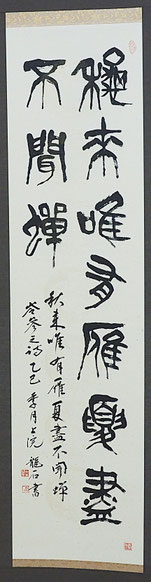 秋来唯有雁夏盡
不聞蟬
秋来唯有雁夏盡不聞蟬
岑参之詩乙巳季月上浣 龍石書